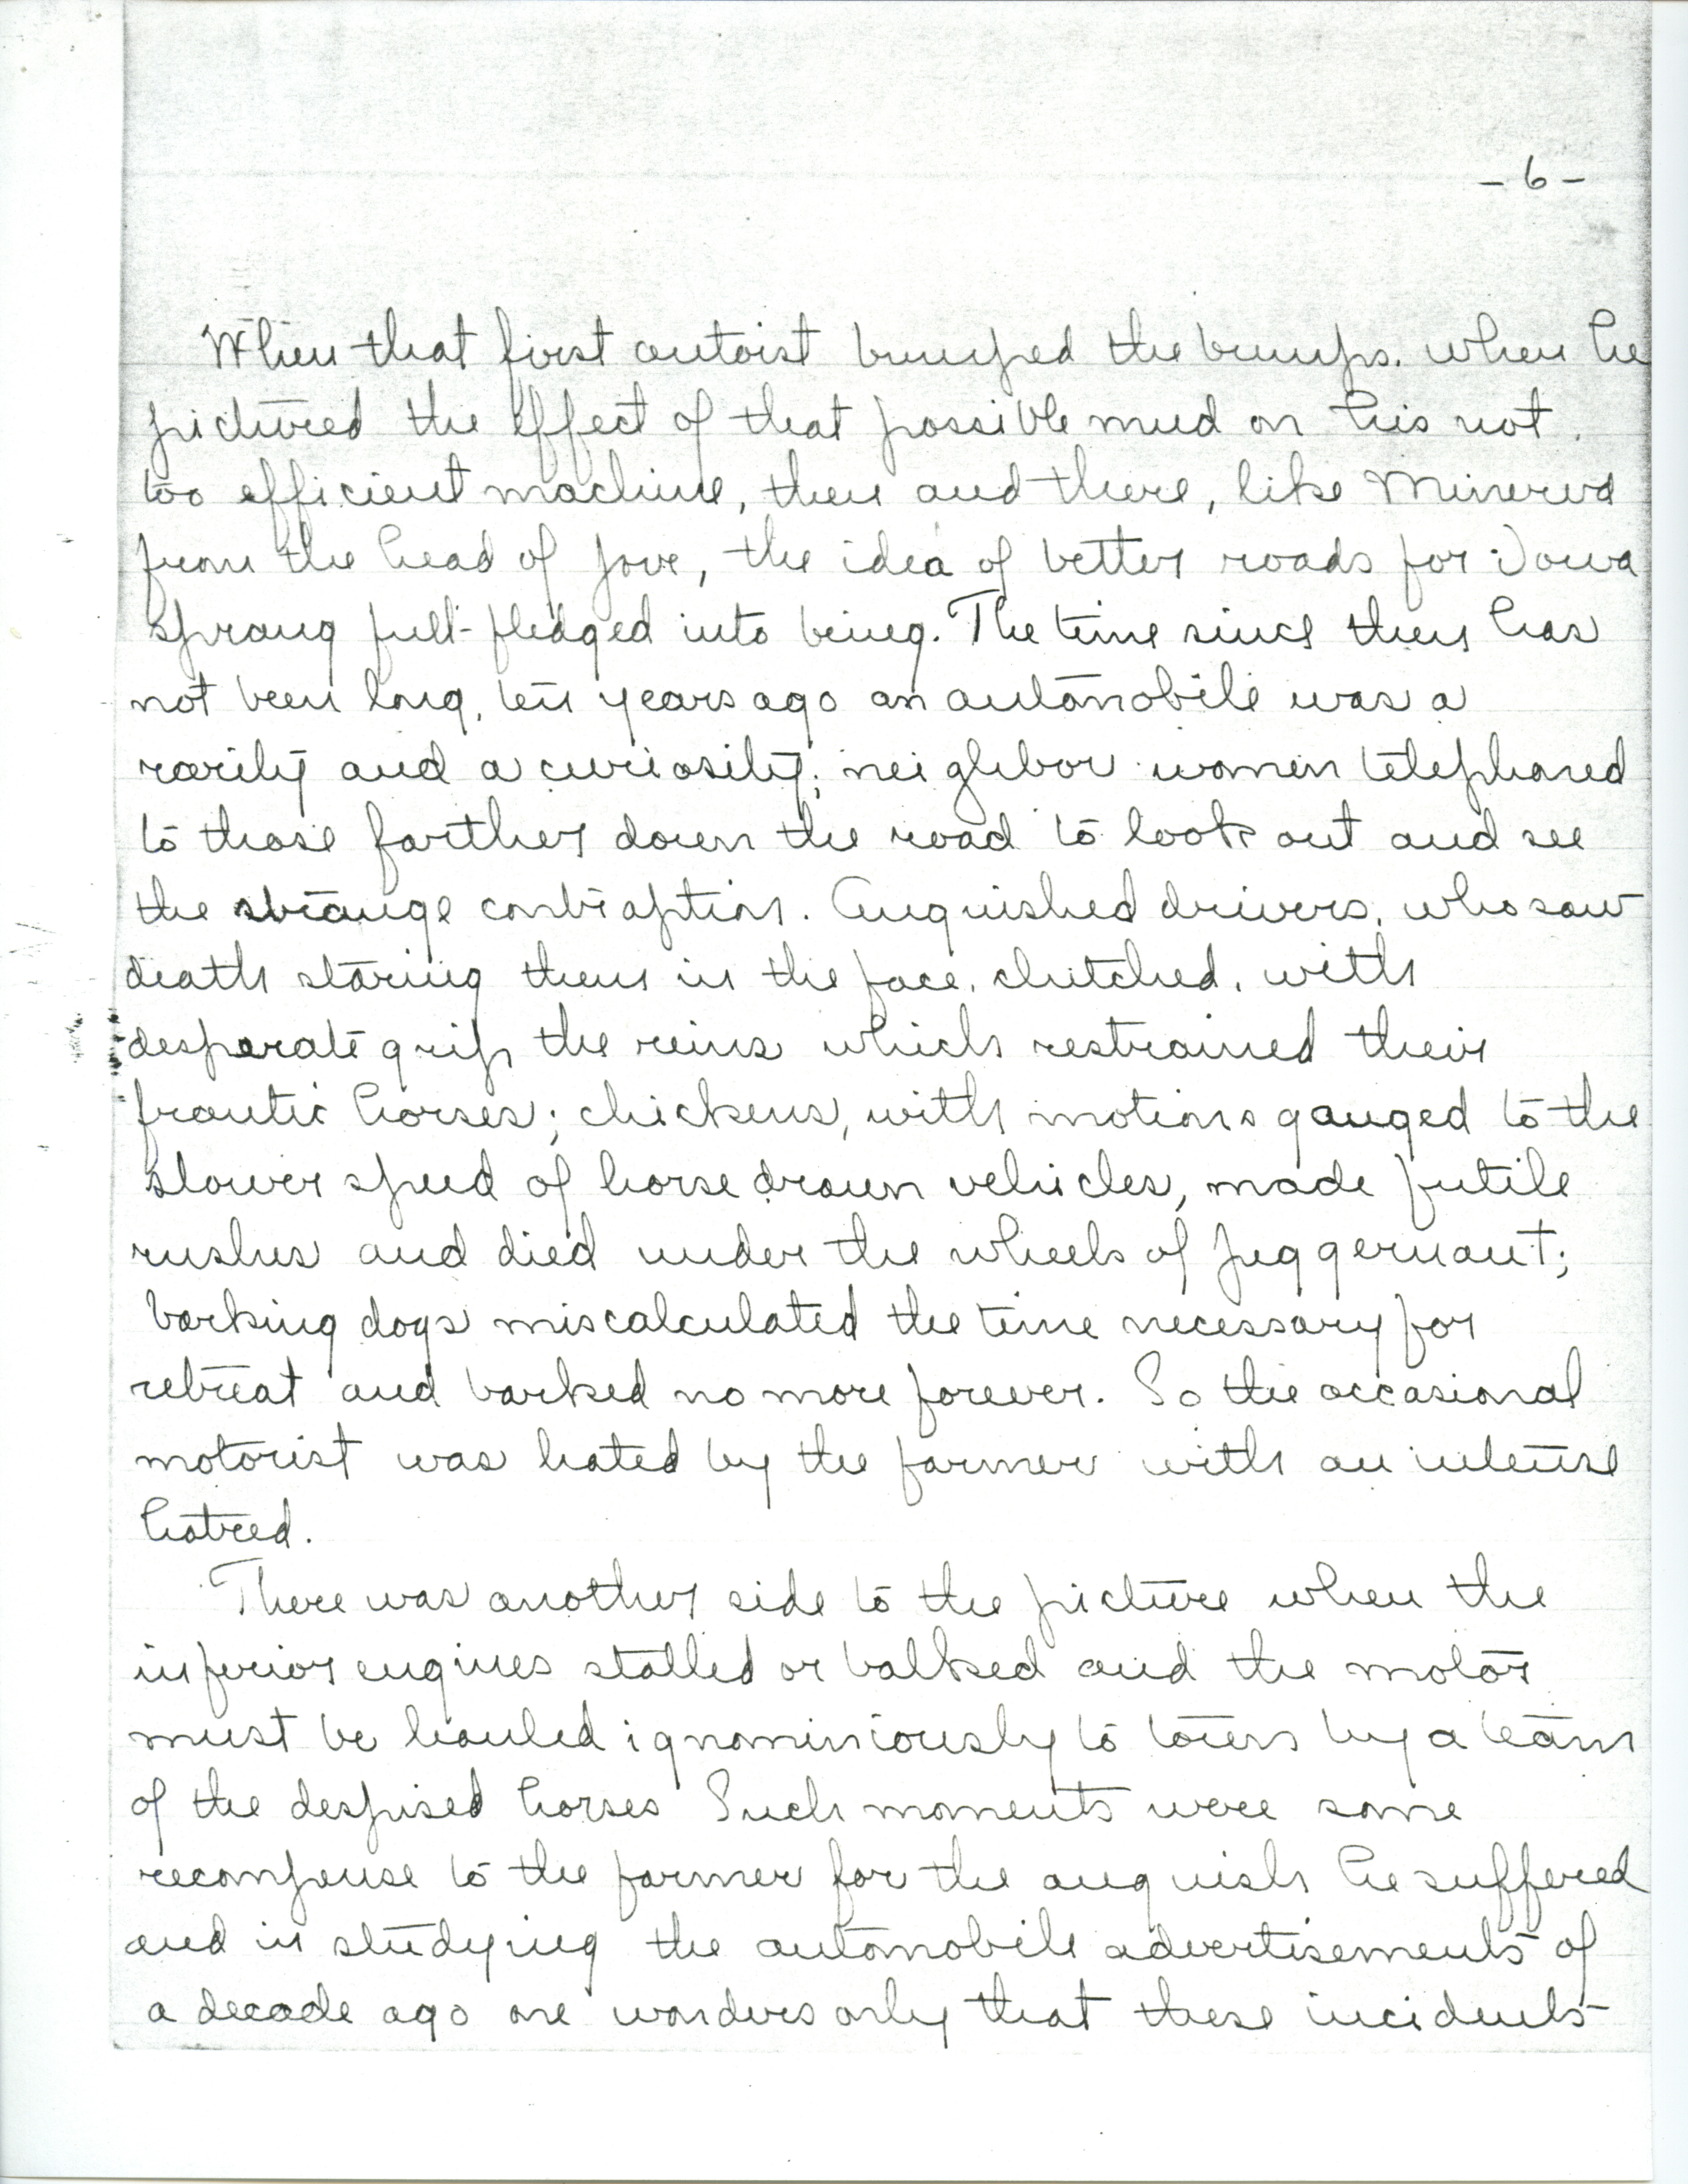 - 6 -
When that first autoist bumped the bumps. when he
pictured the effect of that possible mud on his not
too efficient machine, then and there, like Minerva
from the head of Jove, the idea of better roads for Iowa
sprang full-fledged into being. The time since then has
not been long, ten years ago an automobile was a
rarity and a curiosity; neighbor women telephoned
to those farther down the road to look out and see
the strange contraption. Anguished drivers, who saw
death staring them in the face, clutched, with
desperate grip the reins which restrained their
frantic horses; chickens, with motions gauged to the
slower speed of horse drawn vehicles, made futile
rushes and died under the wheels of juggernaut;
barking dogs miscalculated the time necessary for
retreat and barked no more forever. So the occasional
motorist was hated by the farmer with an intense
hatred.
There was another side to the picture when the
inferior engines stalled or balked and the motor
must be hauled ignominiously to town by a team
of the despised horses Such moments were some
recompense to the farmer for the anguish he suffered
and in studying the automobile advertisements of
a decade ago one wonders only that these incidents